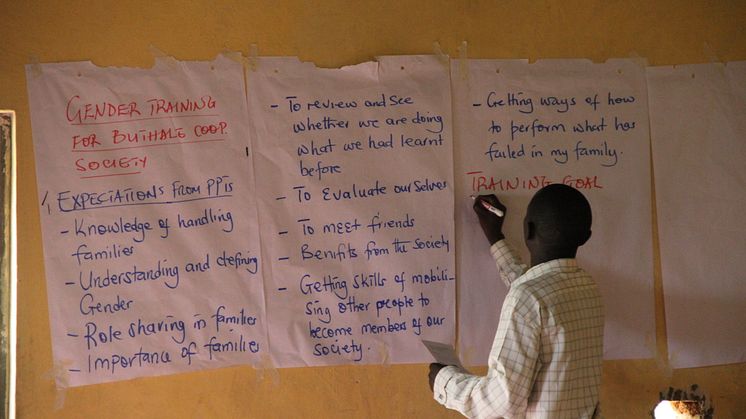 GENDER TRAINING
FOR BUTHALE COOP.
SOCIETY
1, EXPECTATIONS FROM PPTS
- Knowledge of handling
families
- Understanding and defining
Gender
- Role sharing in families
- Importance of families
- To review and see
whether we are doing
what we had learnt
before
- To Evaluate ourselves
- To meet friends
- Benifits from the society
- Getting skills of mobili-
sing other people to
become members of our
society.
- Getting ways of how
to perform what has
failed in my family.
TRAINING GOAL